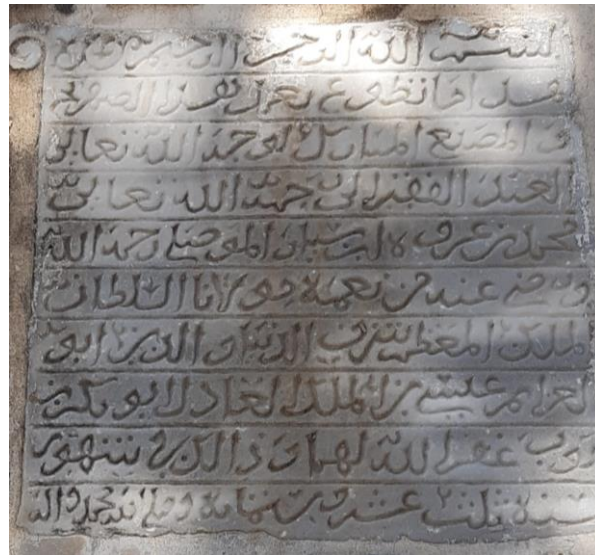 بسم الله الرحمن الرحيم
هذا ما تطوع بعمل هذا الصهريج
و المصنع المبارك لوجه الله تعالى
العبد الفقير الى رحمة الله تعالى
محمد بن عروة بن سيار الموصلي رحمه الله
عند من نعمة مولانا السلطان
الملك المعظم شرف الدنيا و الدين ابو
العزائم عيسى بن الملك العادل ابو بكر بن
ايوب غفر الله لهما و ذالك في شهور
سنة ثلث عشر وستمائة وصلى الله على محمد واله